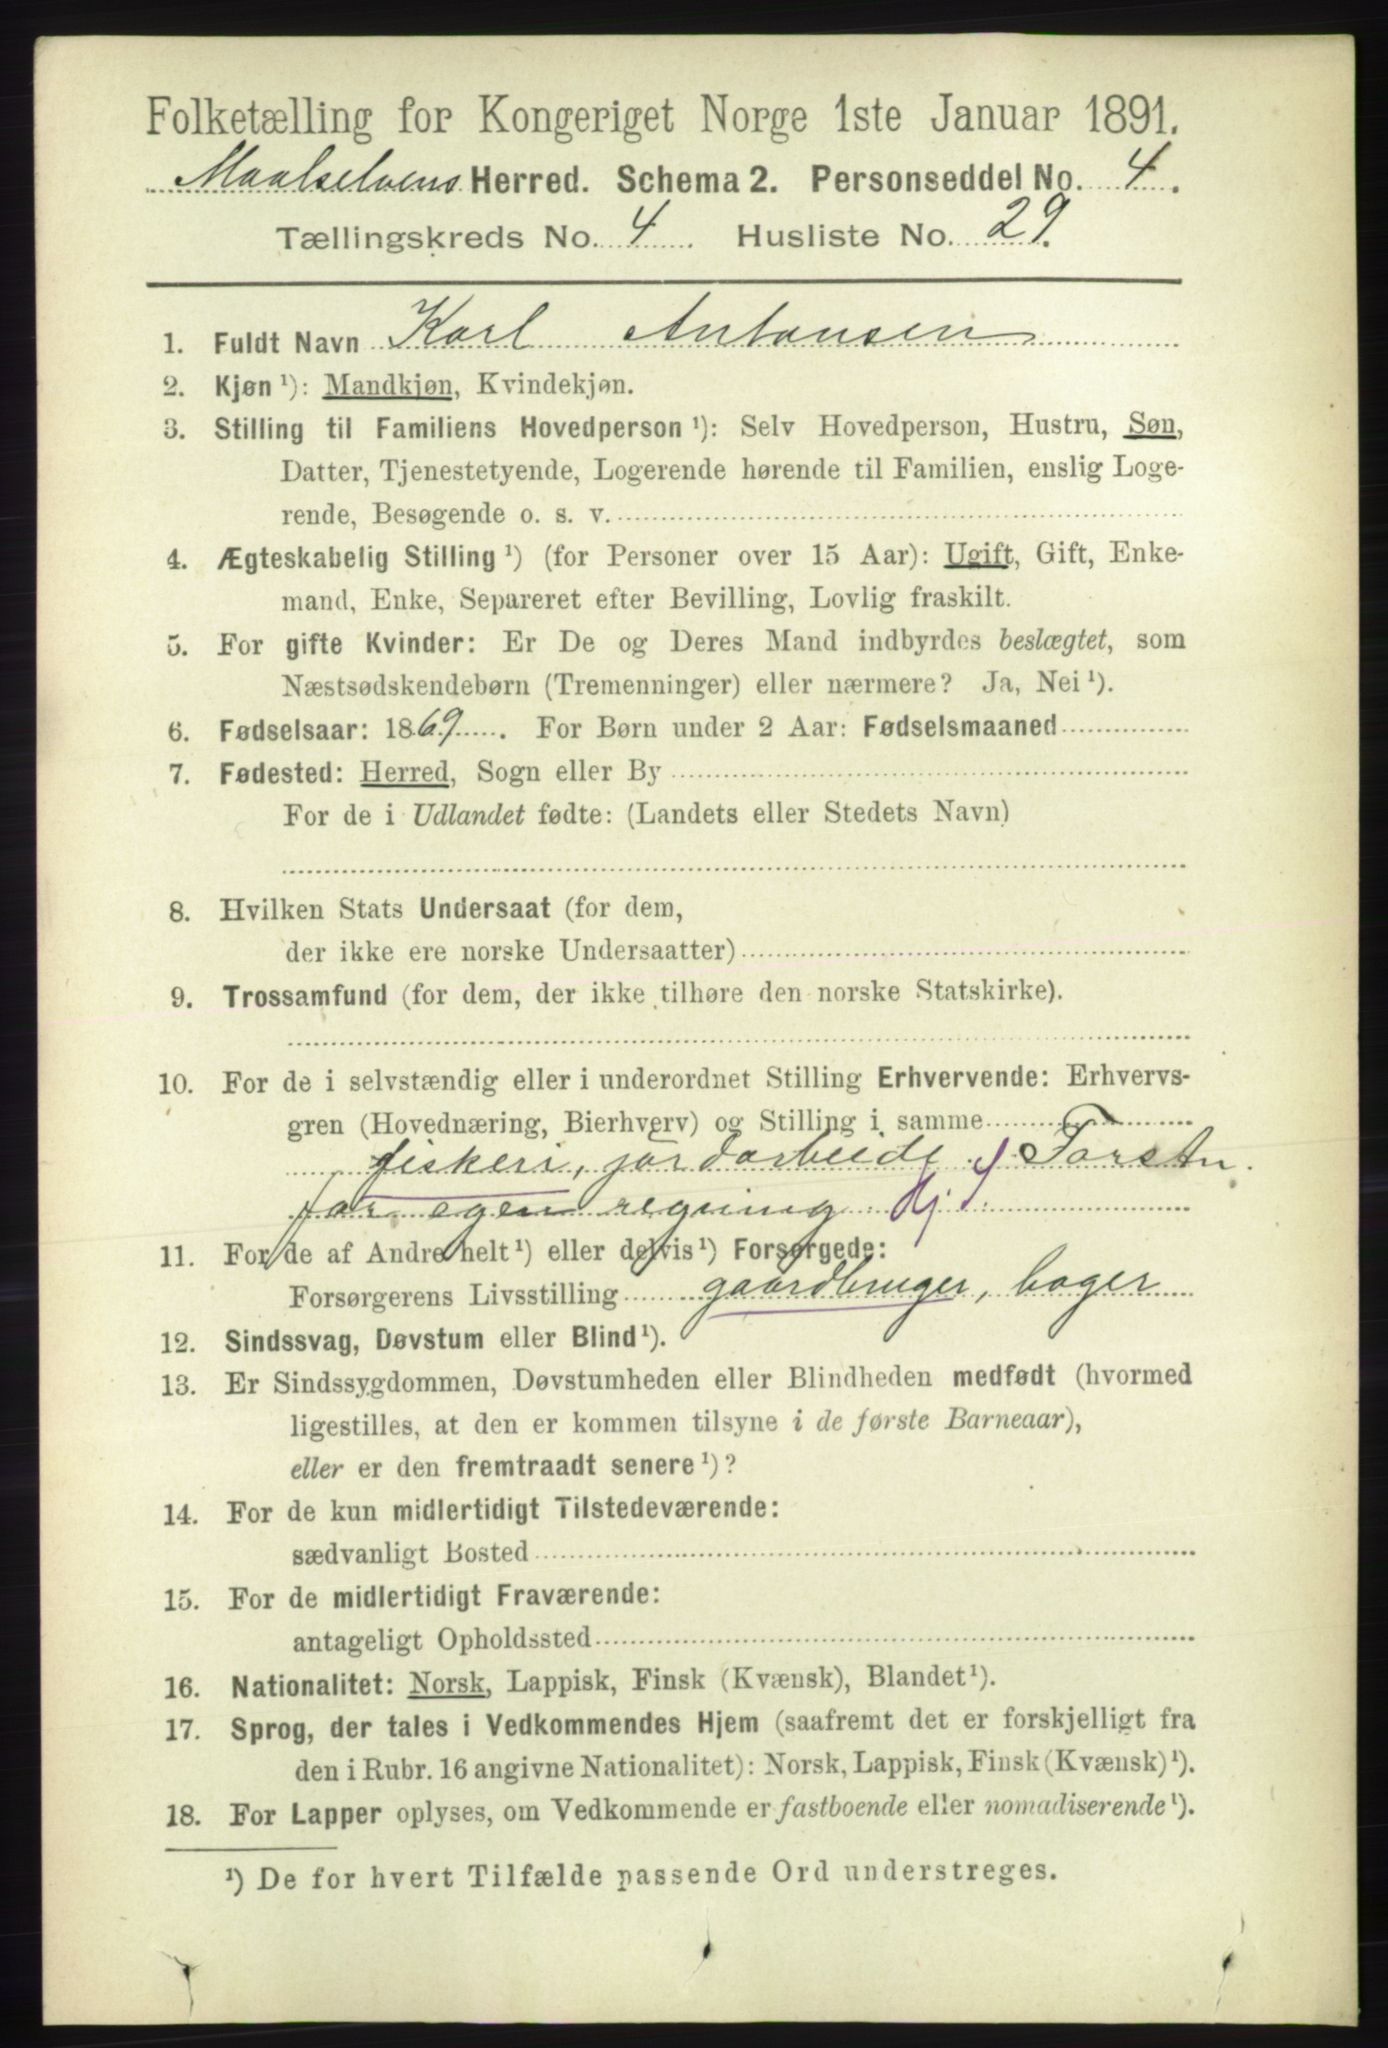 Folketælling for Kongeriget Norge 1ste Januar 1891.
Maalselvens Herred. Schema 2. Personseddel No. 4.
Tællingskreds No. 4. Husliste No. 29.
1. Fuldt Navn Karl Antonsen
2. Kjøn ¹): Mandkjøn, Kvindekjøn.
3. Stilling til Familiens Hovedperson ¹): Selv Hovedperson, Hustru, Søn,
Datter, Tjenestetyende, Logerende hørende til Familien, enslig Loge-
rende, Besøgende o. s. v.
4. Ægteskabelig Stilling ¹) (for Personer over 15 Aar): Ugift, Gift, Enke-
mand, Enke, Separeret efter Bevilling, Lovlig fraskilt.
5. For gifte Kvinder: Er De og Deres Mand indbyrdes beslægtet, som
Næstsødskendebørn (Tremenninger) eller nærmere? Ja, Nei ¹).
6. Fødselsaar: 1869. For Børn under 2 Aar: Fødselsmaaned
7. Fødested: Herred, Sogn eller By
For de i Udlandet fødte: (Landets eller Stedets Navn)
8. Hvilken Stats Undersaat (for dem,
der ikke ere norske Undersaatter)
9. Trossamfund (for dem, der ikke tilhøre den norske Statskirke).
10. For de i selvstændig eller i underordnet Stilling Erhvervende: Erhvervs-
gren (Hovednæring, Bierhverv) og Stilling i samme
fiskeri, jordarbeide
for egen regning
11. For de af Andre helt ¹) eller delvis ¹) Forsørgede:
Forsørgerens Livsstilling gaardbruger, bager
12. Sindssvag, Døvstum eller Blind ¹).
13. Er Sindssygdommen, Døvstumheden eller Blindheden medfødt (hvormed
ligestilles, at den er kommen tilsyne i de første Barneaar),
eller er den fremtraadt senere ¹)?
14. For de kun midlertidigt Tilstedeværende:
sædvanligt Bosted
15. For de midlertidigt Fraværende:
antageligt Opholdssted
16. Nationalitet: Norsk, Lappisk, Finsk (Kvænsk), Blandet ¹).
17. Sprog, der tales i Vedkommendes Hjem (saafremt det er forskjelligt fra
den i Rubr. 16 angivne Nationalitet): Norsk, Lappisk, Finsk (Kvænsk) ¹).
18. For Lapper oplyses, om Vedkommende er fastboende eller nomadiserende ¹).
¹) De for hvert Tilfælde passende Ord understreges.